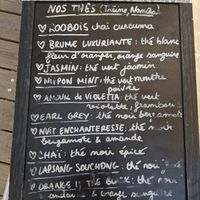 NOS THÉS (Infusme, Nantes)
ROOIBOIS chaï curcuma
BRUME LUXURIANTE : thé blanc
fleur d'oranger, orange sanguine
JASMIN : thé vert jasmin
MIPON MINT : thé vert menthe
poivrée
AMOUR de VIOLETTA : thé vert
violette, framboise
EARL GREY : thé noir bergamote
NUIT ENCHANTERESSE : thé noir
bergamote & amande
CHAÏ : thé noir épicé
LAPSANG SOUCHONG : thé noir
ORANGE : thé noir
& orange sanguine